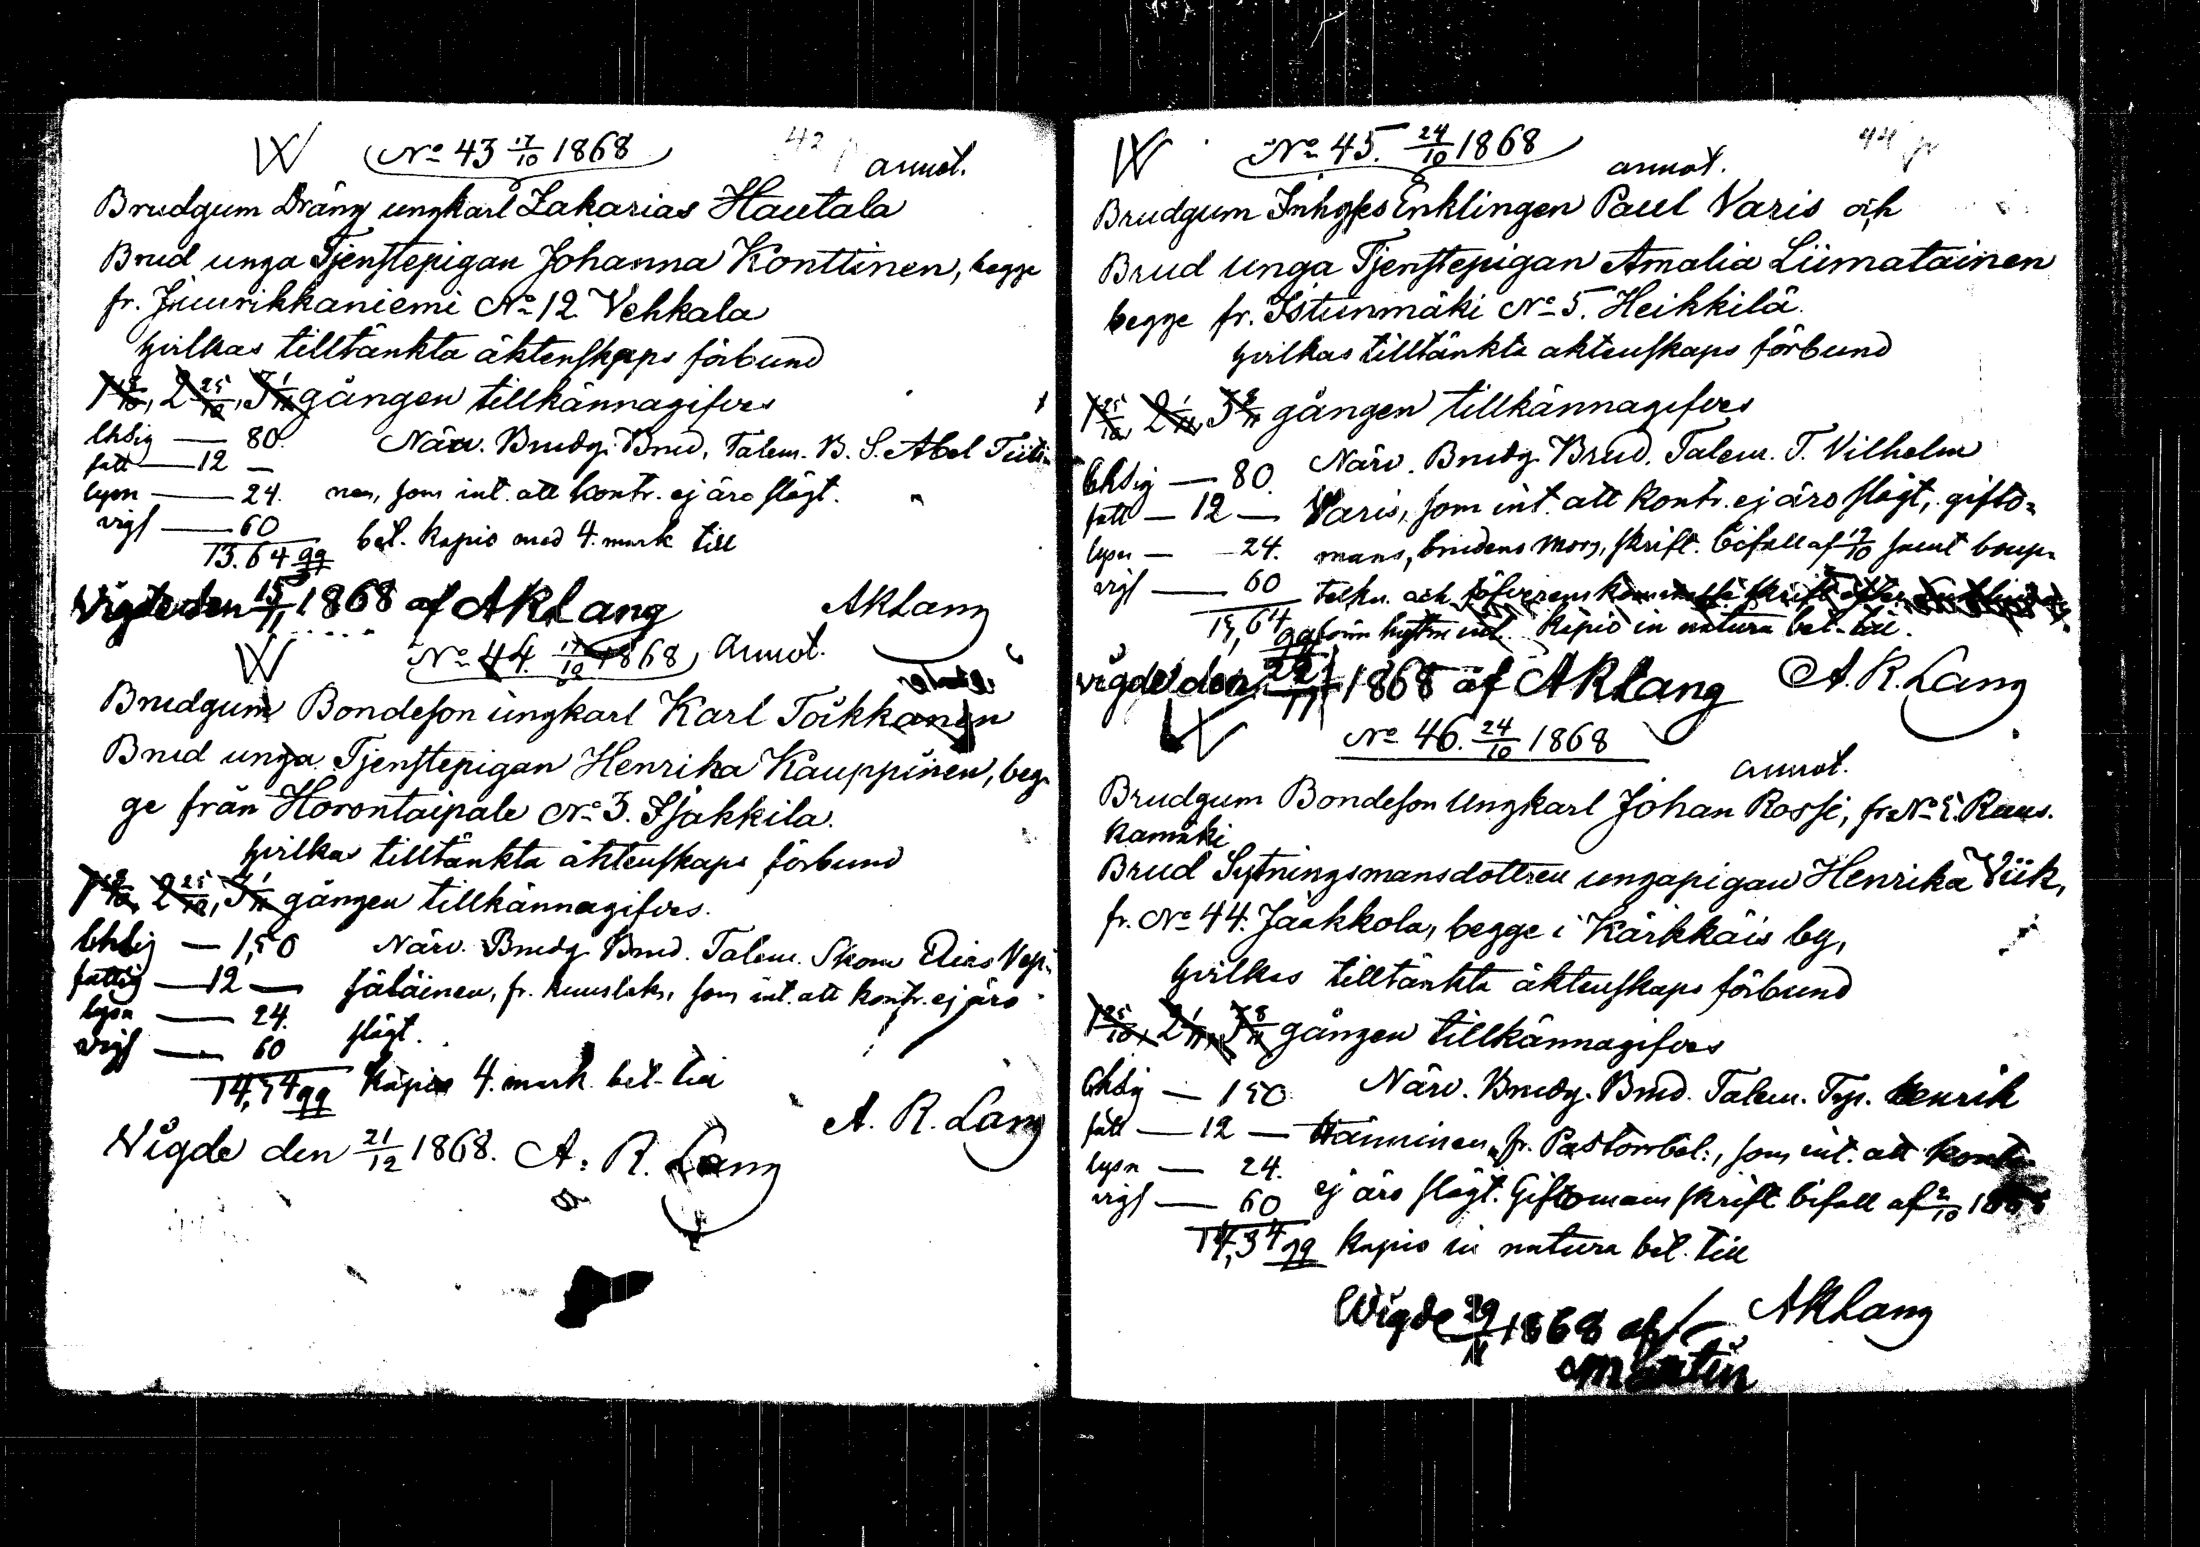 W No 43 17/10 1868 42 annot.
Brudgum Dräng ungkarl Zakarias Hautala
Brud unga Tjenstepigan Johanna Konttinen, begge
fr. Juurikkaniemi No 12 Vehkala
hvilkas tilltänkta äktenskaps förbund
1 18/10, 2 25/10, 3 1/11 gången tillkännagifves
80. Närv. Brudg. Brud, Talem. B. S. Abel Tiiti-
fatt 12 —
lysn — 24. nen, som int. att kontr. ej äro slägt.
vigs — 60
13.64 bet. Kapio med 4. mark till
Vigde den 15/11 1868 af ARLang ARLang
W No 44. 17/10 1868 annot.
Brudgum Bondeson ungkarl Karl Toikkanen
Brud unga Tjenstepigan Henrika Kauppinen, beg-
ge från Horontaipale No 3. Sjakkila.
hvilkas tilltänkta äktenskaps förbund
1 18/10, 2 25/10, 3 1/11 gången tillkännagifves.
— 1,50 Närv. Brudg. Brud. Talem. Skom Elias Vep-
fattig — 12 — säläinen, fr. som int. att kontr. ej äro
lysn — 24. slägt.
vigs — 60
14,34 Kapio 4. mark bet. till
A. R. Lang
Vigde den 21/12 1868. A. R. Lang
W No 45. 24/10 1868 annot. 44
Brudgum Inhyses Enklingen Paul Varis och
Brud unga Tjenstepigan Amalia Liimatainen
begge fr. Istunmäki No 5. Heikkilä.
hvilkas tilltänkta äktenskaps förbund
1 25/10, 2 1/11, 3 8/11 gången tillkännagifves
— 80. Närv. Brudg. Brud. Talem. T. Vilhelm
fatt — 12 — Varis, som int. att kontr. ej äro slägt, gifto-
lysn — 24. mans, brudens mors, skrift. bifall af 19/10 samt
vigs — 60
Kapio in natura bet. till.
Vigde den 22/11 1868 af ARLang A. R. Lang
W No 46. 24/10 1868
annot.
Brudgum Bondeson Ungkarl Johan Rossi, fr. No 5. Raus-
kamäki
Brud Sytningsmansdottren ungapigan Henrika Viik,
fr. No 44. Jaakkola, begge i Kärkkäis by,
hvilkas tilltänkta äktenskaps förbund
1 25/10, 2 1/11, 3 8/11 gången tillkännagifves
— 150 Närv. Brudg. Brud. Talem. Henrik
fatt — 12 — Hänninen, fr. Pastorsbol:, som int. att kontr.
lysn — 24.
vigs — 60 ej äro slägt. Giftomans skrift. bifall af 2/10 1868
14,34 Kapio in natura bet. till
Wigde 29/11 1868 af ARLang